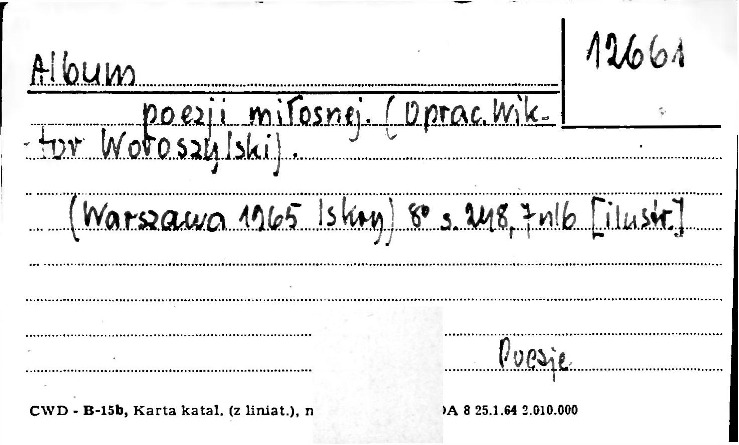 12661
Album
poezji miłosnej. (Oprac. Wik-
tor Woroszylski).
(Warszawa 1965 Iskry) 8° s. 248, 7 nlb [ilustr.]
Poezje
CWD - B-15b, Karta katal. (z liniat.), n DA 8 25.1.64 2.010.000